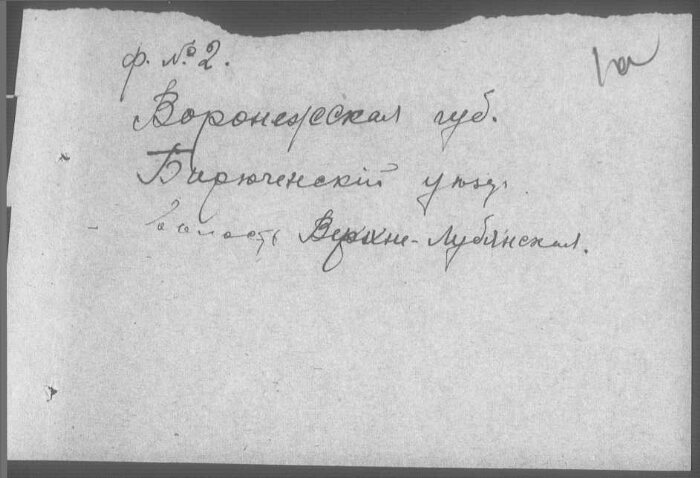 ф. № 2.
1а
Воронежская губ.
Бирюченскій уѣзд.
Волость Верхне-Лубянская.